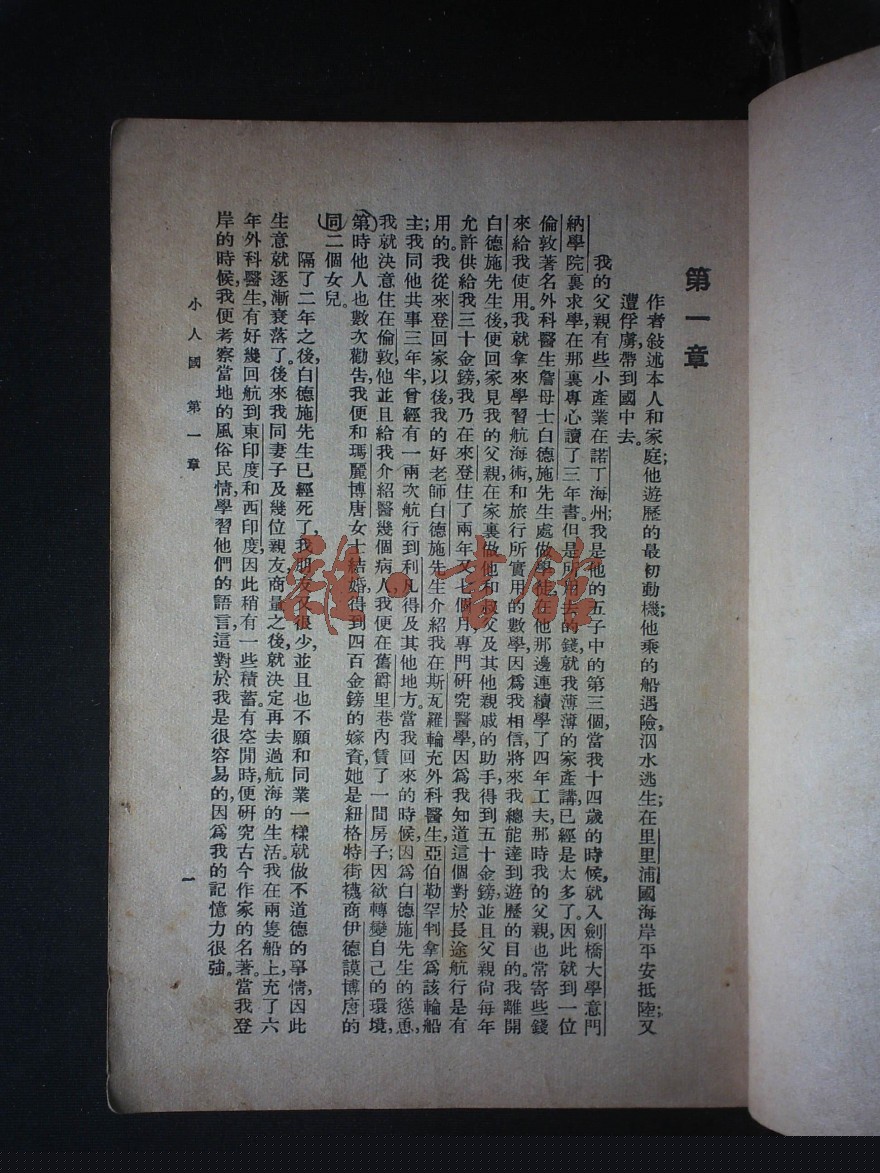 第一章
作者敍述本人和家庭;他遊歷的最初動機;他乘的船遇險,泅水逃生;在里里浦國海岸平安抵陸;又
遭俘虜,帶到國中去。
我的父親有些小產業在諾丁海州;我是他的五子中的第三個,當我十四歲的時候,就入劍橋大學意門
納學院裏求學在那裏專心讀了三年書。但是所用去的錢,就我薄薄的家產講,已經是太多了。因此就到一位
倫敦著名外科醫生詹母士白德施先生處做學徒,在他那邊連續學了四年工夫,那時我的父親,也常寄些錢
來給我使用。我就拿來學習航海術,和旅行所實用的數學,因爲我相信,將來我總能達到遊歷的目的。我離開
白德施先生後,便回家見我的父親,在家裏做他和叔父及其他親戚的助手,得到五十金鎊,並且父親尙每年
允許供給我三十金鎊,我乃在來登住了兩年又七個月專門研究醫學,因爲我知道這個對於長途航行是有
用的。我從來登回家以後,我的好老師白德施先生介紹我在斯瓦羅輪充外科醫生,亞伯勒罕判拿爲該輪船
主;我同他共事三年半,曾經有一兩次航行到利凡得及其他地方。當我回來的時候,因爲白德施先生的慫恿,
我就決意住在倫敦,他並且給我介紹醫幾個病人,我便在舊爵里巷內賃了一間房子;因欲轉變自己的環境,
第時他人也數次勸吿,我便和瑪麗博唐女士結婚,得到四百金鎊的嫁資,她是紐格特街襪商伊德謨博唐的
同二個女兒。
隔了二年之後,白德施先生已經死了,我朋友又很少,並且也不願和同業一樣就做不道德的事情,因此
生意就逐漸衰落了。後來我同妻子及幾位親友商量之後,就決定再去過航海的生活。我在兩隻船上,充了六
年外科醫生,有好幾回航到東印度和西印度,因此稍有一些積蓄。有空閒時,便研究古今作家的名著。當我登
岸的時候,我便考察當地的風俗民情,學習他們的語言,這對於我是很容易的,因爲我的記憶力很強。
小人國 第一章
一
雜·書館